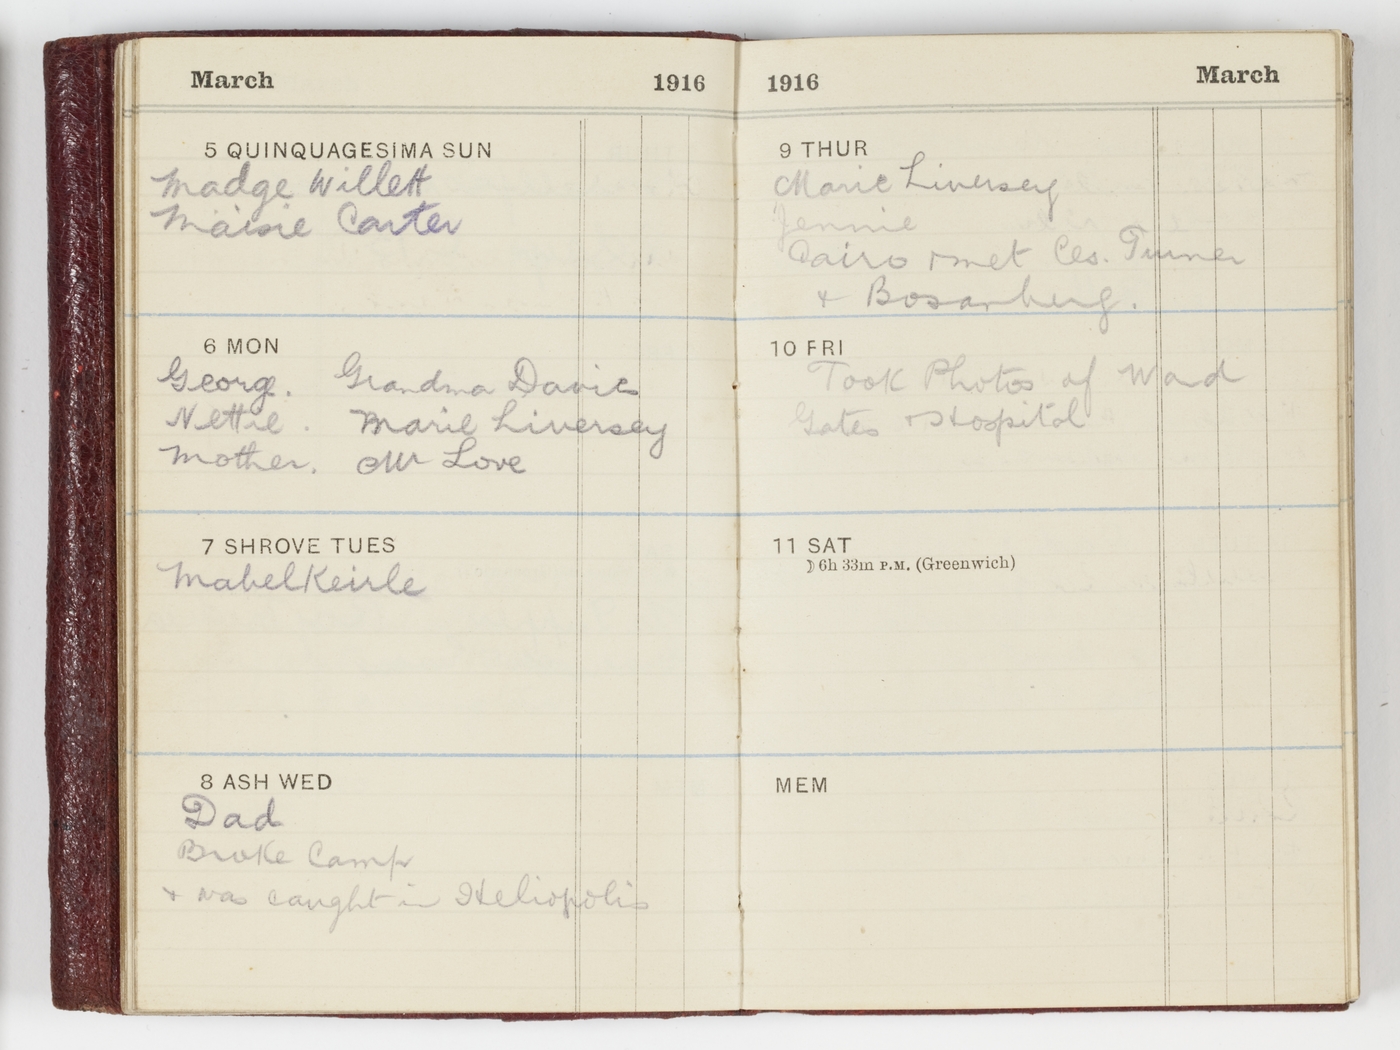 March 1916
5 QUINQUAGESIMA SUN
Madge Willett
Maisie Carter
6 MON
George. Grandma Davies
Nettie. Marie Liversey
Mother. Mr Love
7 SHROVE TUES
Mabel Keirle
8 ASH WED
Dad
Broke Camp
+ was caught in Heliopolis
1916 March
9 THUR
Marie Liversey
Jennie
Cairo + met Ces. Turner
+ Bosanberg.
10 FRI
Took Photos of Ward
Gates + Hospital
11 SAT
☽ 6h 33m P.M. (Greenwich)
MEM